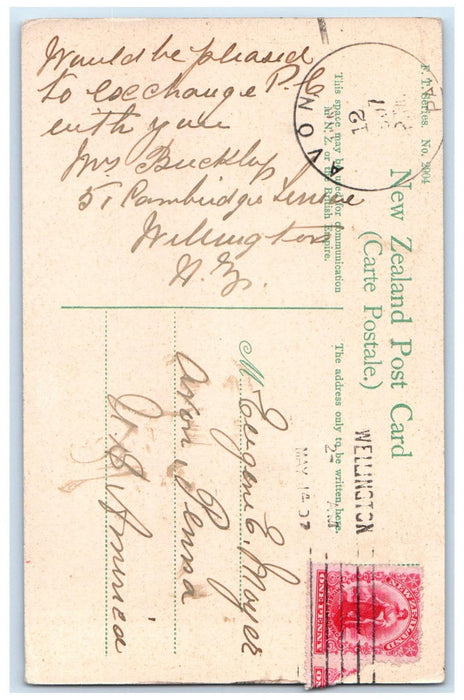 F. T. Series. No. 2004
New Zealand Post Card
(Carte Postale.)
This space may be used for communication
in N.Z. or the British Empire.
The address only to be written here.
Would be pleased
to exchange P.C.
with you
Mrs Buckley
51 Cambridge Terrace
Wellington
N.Z.
AVON
PA
12
WELLINGTON
2- AM
MAY 1
M Eugene E. Moyer
Avon Penna
U. S. America
ZEALAND
ONE PENNY